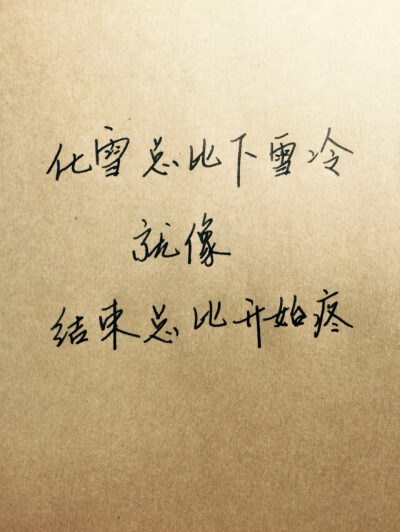 化雪总比下雪冷
就像
结束总比开始疼